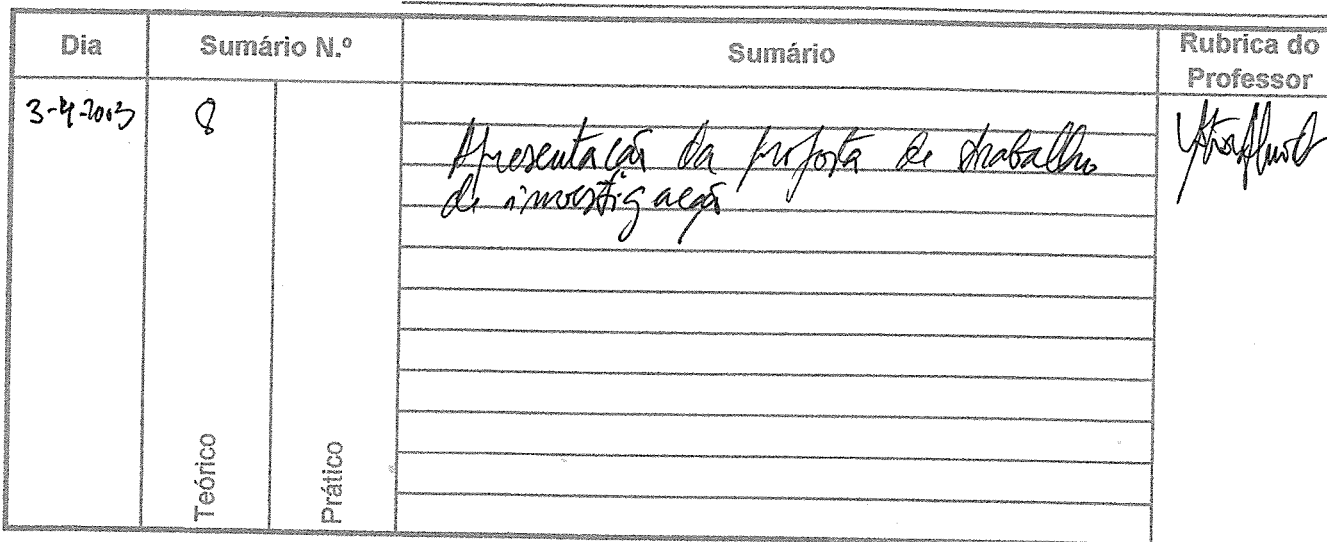 Dia Sumário N.º Sumário Rubrica do Professor
3-4-2003 8
Apresentação da proposta de trabalho
de investigação
Teórico Prático